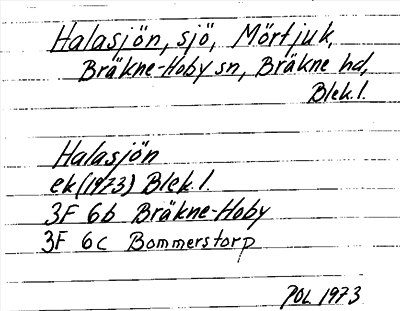 Halasjön, sjö, Mörtjuk,
Bräkne-Hoby sn, Bräkne hd,
Blek. l.
Halasjön
ek (1973) Blek. l.
3F 6b Bräkne-Hoby
3F 6c Bommerstorp
POL 1973